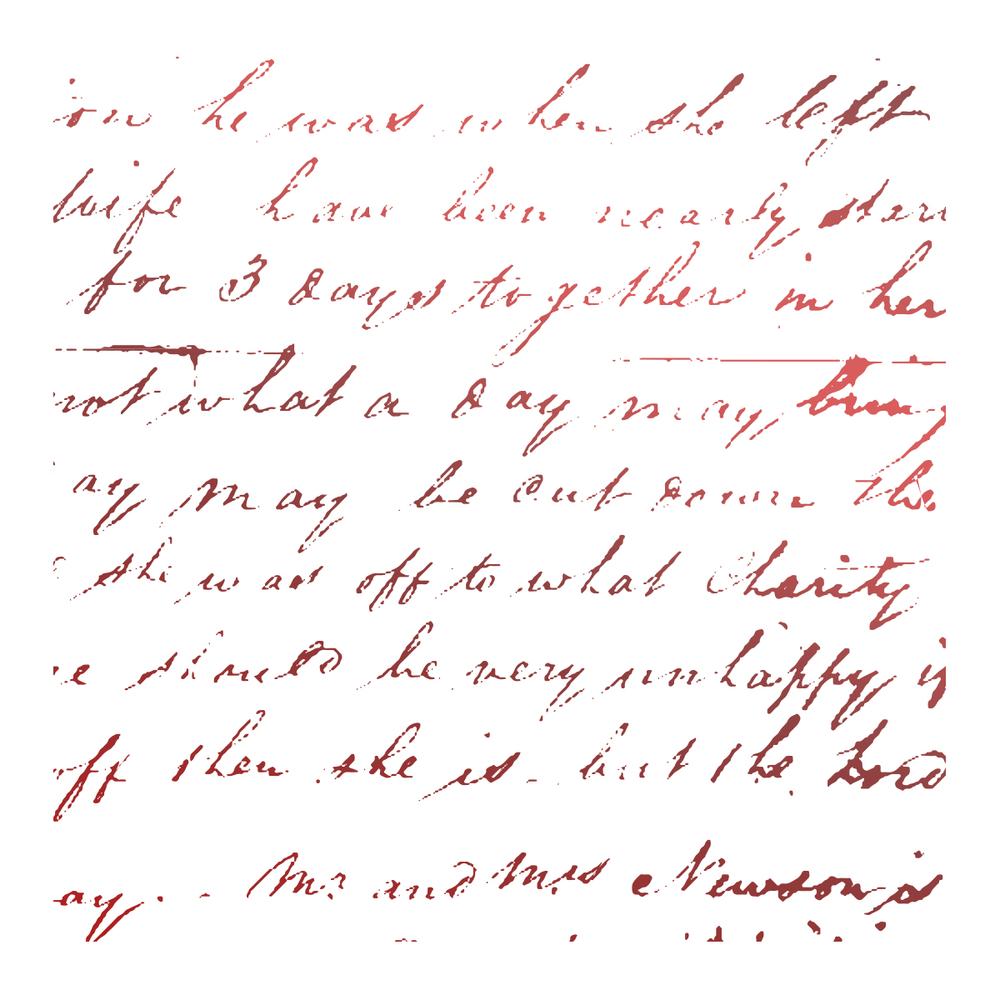 ion he was when she left
wife have been nearly starv
for 3 days together in her
not what a day may bring
ay may be cut down the
she was off to what Charity
we should be very unhappy if
off then she is - but the Lord
ay. - Mr. and Mrs Newson is